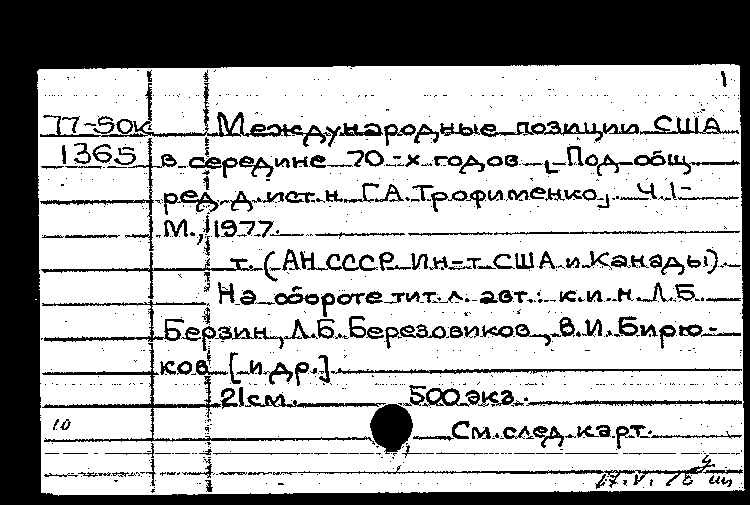 1
77-50к Международные позиции США
1365 в середине 70-х годов [Под общ.
ред. д. ист. н. Г.А. Трофименко]. Ч. 1-
М., 1977.
т. (АН СССР. Ин-т США и Канады).
На обороте тит. л. авт.: к.и.н. Л.Б.
Берзин, Л.Б. Березовиков, В.И. Бирю-
ков [и др.].
21 см. 500 экз.
10 См. след. карт.